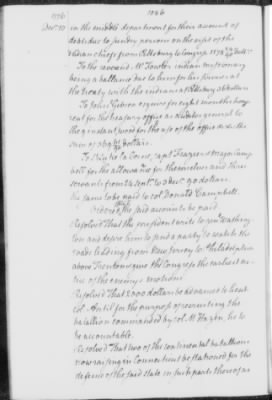 1776
1026
Dec. 10
in the middle department for their account of
debts due to sundry persons on the visit of the
Indian chiefs from Pittsburg to Congress 1178
To the revd. Mr. Indian missionary
being a ballance due to him for his services at
the treaty with the indians at Pittsburg
To John Gibson esqr. for eight months hays
rent for the treasury office as Auditor general to
the 9 instant, wood for the use of the office &c. the
sum of dollars.
To St. Luc la Corne, capt. Frazer & major Camp
bell for the allowance for themselves and three
servants from 24 Sept. to 2 dec. 90 dollars.
the same to be paid to col. Donald Campbell.
Ordered the said accounts be paid
Resolved That the president write to genl. Washing
ton and desire him to send a party to watch the
roads leading from New Jersey to Philadelphia
above Trenton & give the Congress the earliest no
tice of the enemy's motions.
Resolved That 2000 dollars be advanced to lieut.
col. Antil for the purpose of recruiting the
battallion commanded by col. M. Hazen, he to
be accountable.
Resolved That two of the continental battallions
now raising in Connecticut be stationed for the
defence of the said state in such parts thereof as